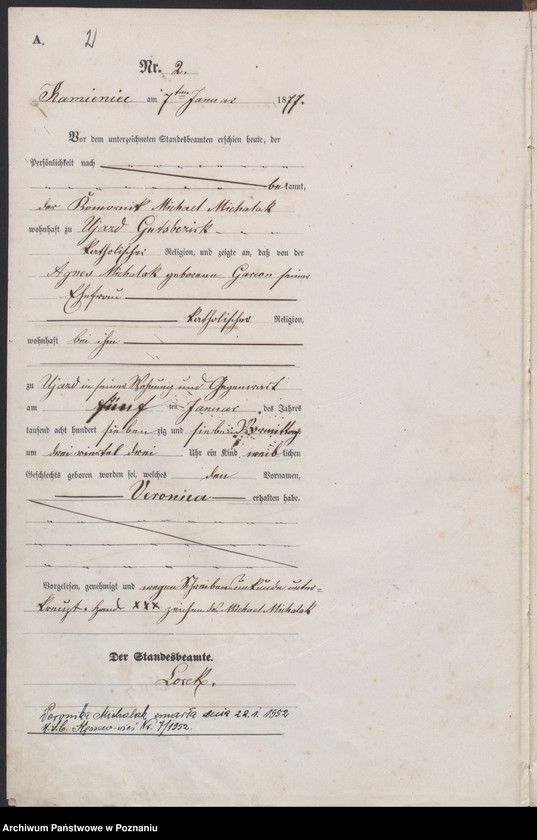 A. 2
Nr. 2.
Kamienice am 7ten Januar 1877.
Vor dem unterzeichneten Standesbeamten erschien heute, der
Persönlichkeit nach
bekannt,
der Komornik Michael Michalak
wohnhaft zu Ujazd Gutsbezirk
katholischer Religion, und zeigte an, daß von der
Agnes Michalak geborene seiner
Ehefrau
katholischer Religion,
wohnhaft bei ihm
zu Ujazd in seiner Wohnung und Gegenwart
am fünf ten Januar des Jahres
tausend acht hundert sieben zig und sieben Vormittag
um drei viertel drei Uhr ein Kind weib lichen
Geschlechts geboren worden sei, welches den Vornamen,
Veronica erhalten habe.
Vorgelesen, genehmigt und wegen Schreibensunkunde unter=
kreuzt. Hand xxx zeichen des Michael Michalak
Der Standesbeamte.
Lorck.
Weronika Michalak zmarła dnia 22.1.1952
U.S.C. Nr. 7/1952.
Archiwum Państwowe w Poznaniu